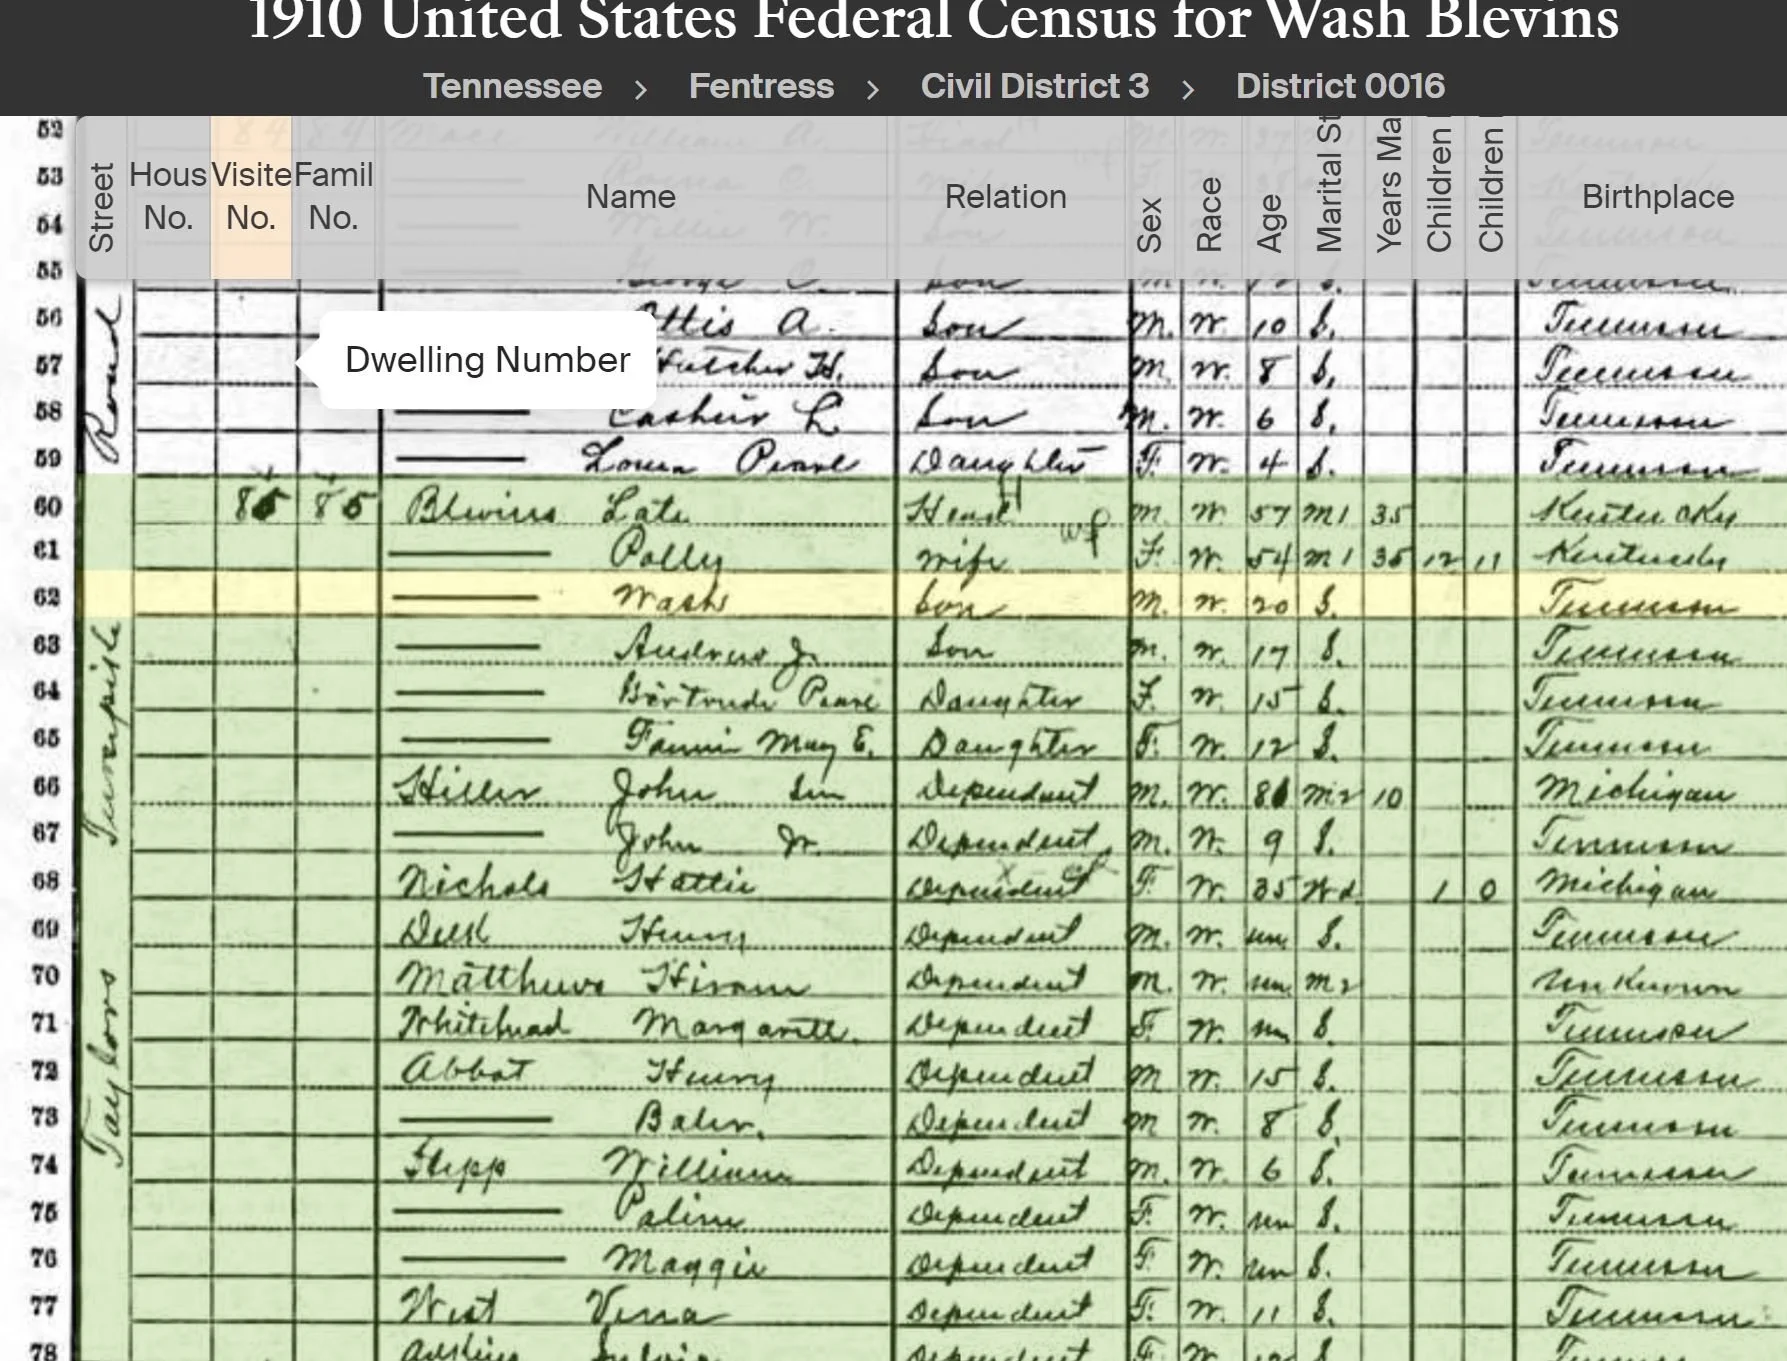 1910 United States Federal Census for Wash Blevins
Tennessee > Fentress > Civil District 3 > District 0016
Street Hous No. Visite No. Famil No. Name Relation Sex Race Age Marital St Years Ma Children Children Birthplace
52 84 84 William A. Head
53
54 Willie W. Son
55 C. Son S. Tennessee
56 Ottis A. Son M. W. 10 S. Tennessee
Dwelling Number
57 H. Son M. W. 8 S. Tennessee
58 L. Son M. W. 6 S. Tennessee
59 Pearl Daughter F. W. 4 S. Tennessee
60 85 85 Blevins Head M. W. 57 M1 35 Kentucky
61 Polly Wife F. W. 54 M1 35 12 11 Kentucky
62 Wash Son M. W. 20 S. Tennessee
63 Andrew J. Son M. W. 17 S. Tennessee
64 Pearl Daughter F. W. 15 S. Tennessee
65 Fannie May E. Daughter F. W. 12 S. Tennessee
66 John Sen Dependent M. W. M2 10 Michigan
67 John Jr. Dependent M. W. 9 S. Tennessee
68 Nichols Hattie Dependent F. W. 35 Wd 1 0 Michigan
69 Delk Henry Dependent M. W. un S. Tennessee
70 Matthews Hiram Dependent M. W. un M2 Unknown
71 Whitehead Dependent F. W. un S. Tennessee
72 Abbot Henry Dependent M W. 15 S. Tennessee
73 Dependent M W. 8 S. Tennessee
74 Stepp William Dependent M. W. 6 S. Tennessee
75 Dependent F. W. un S. Tennessee
76 Maggie Dependent F. W. un S. Tennessee
77 West Dependent F. W. 11 S. Tennessee
78 Dependent
Road
Turnpike
Taylors